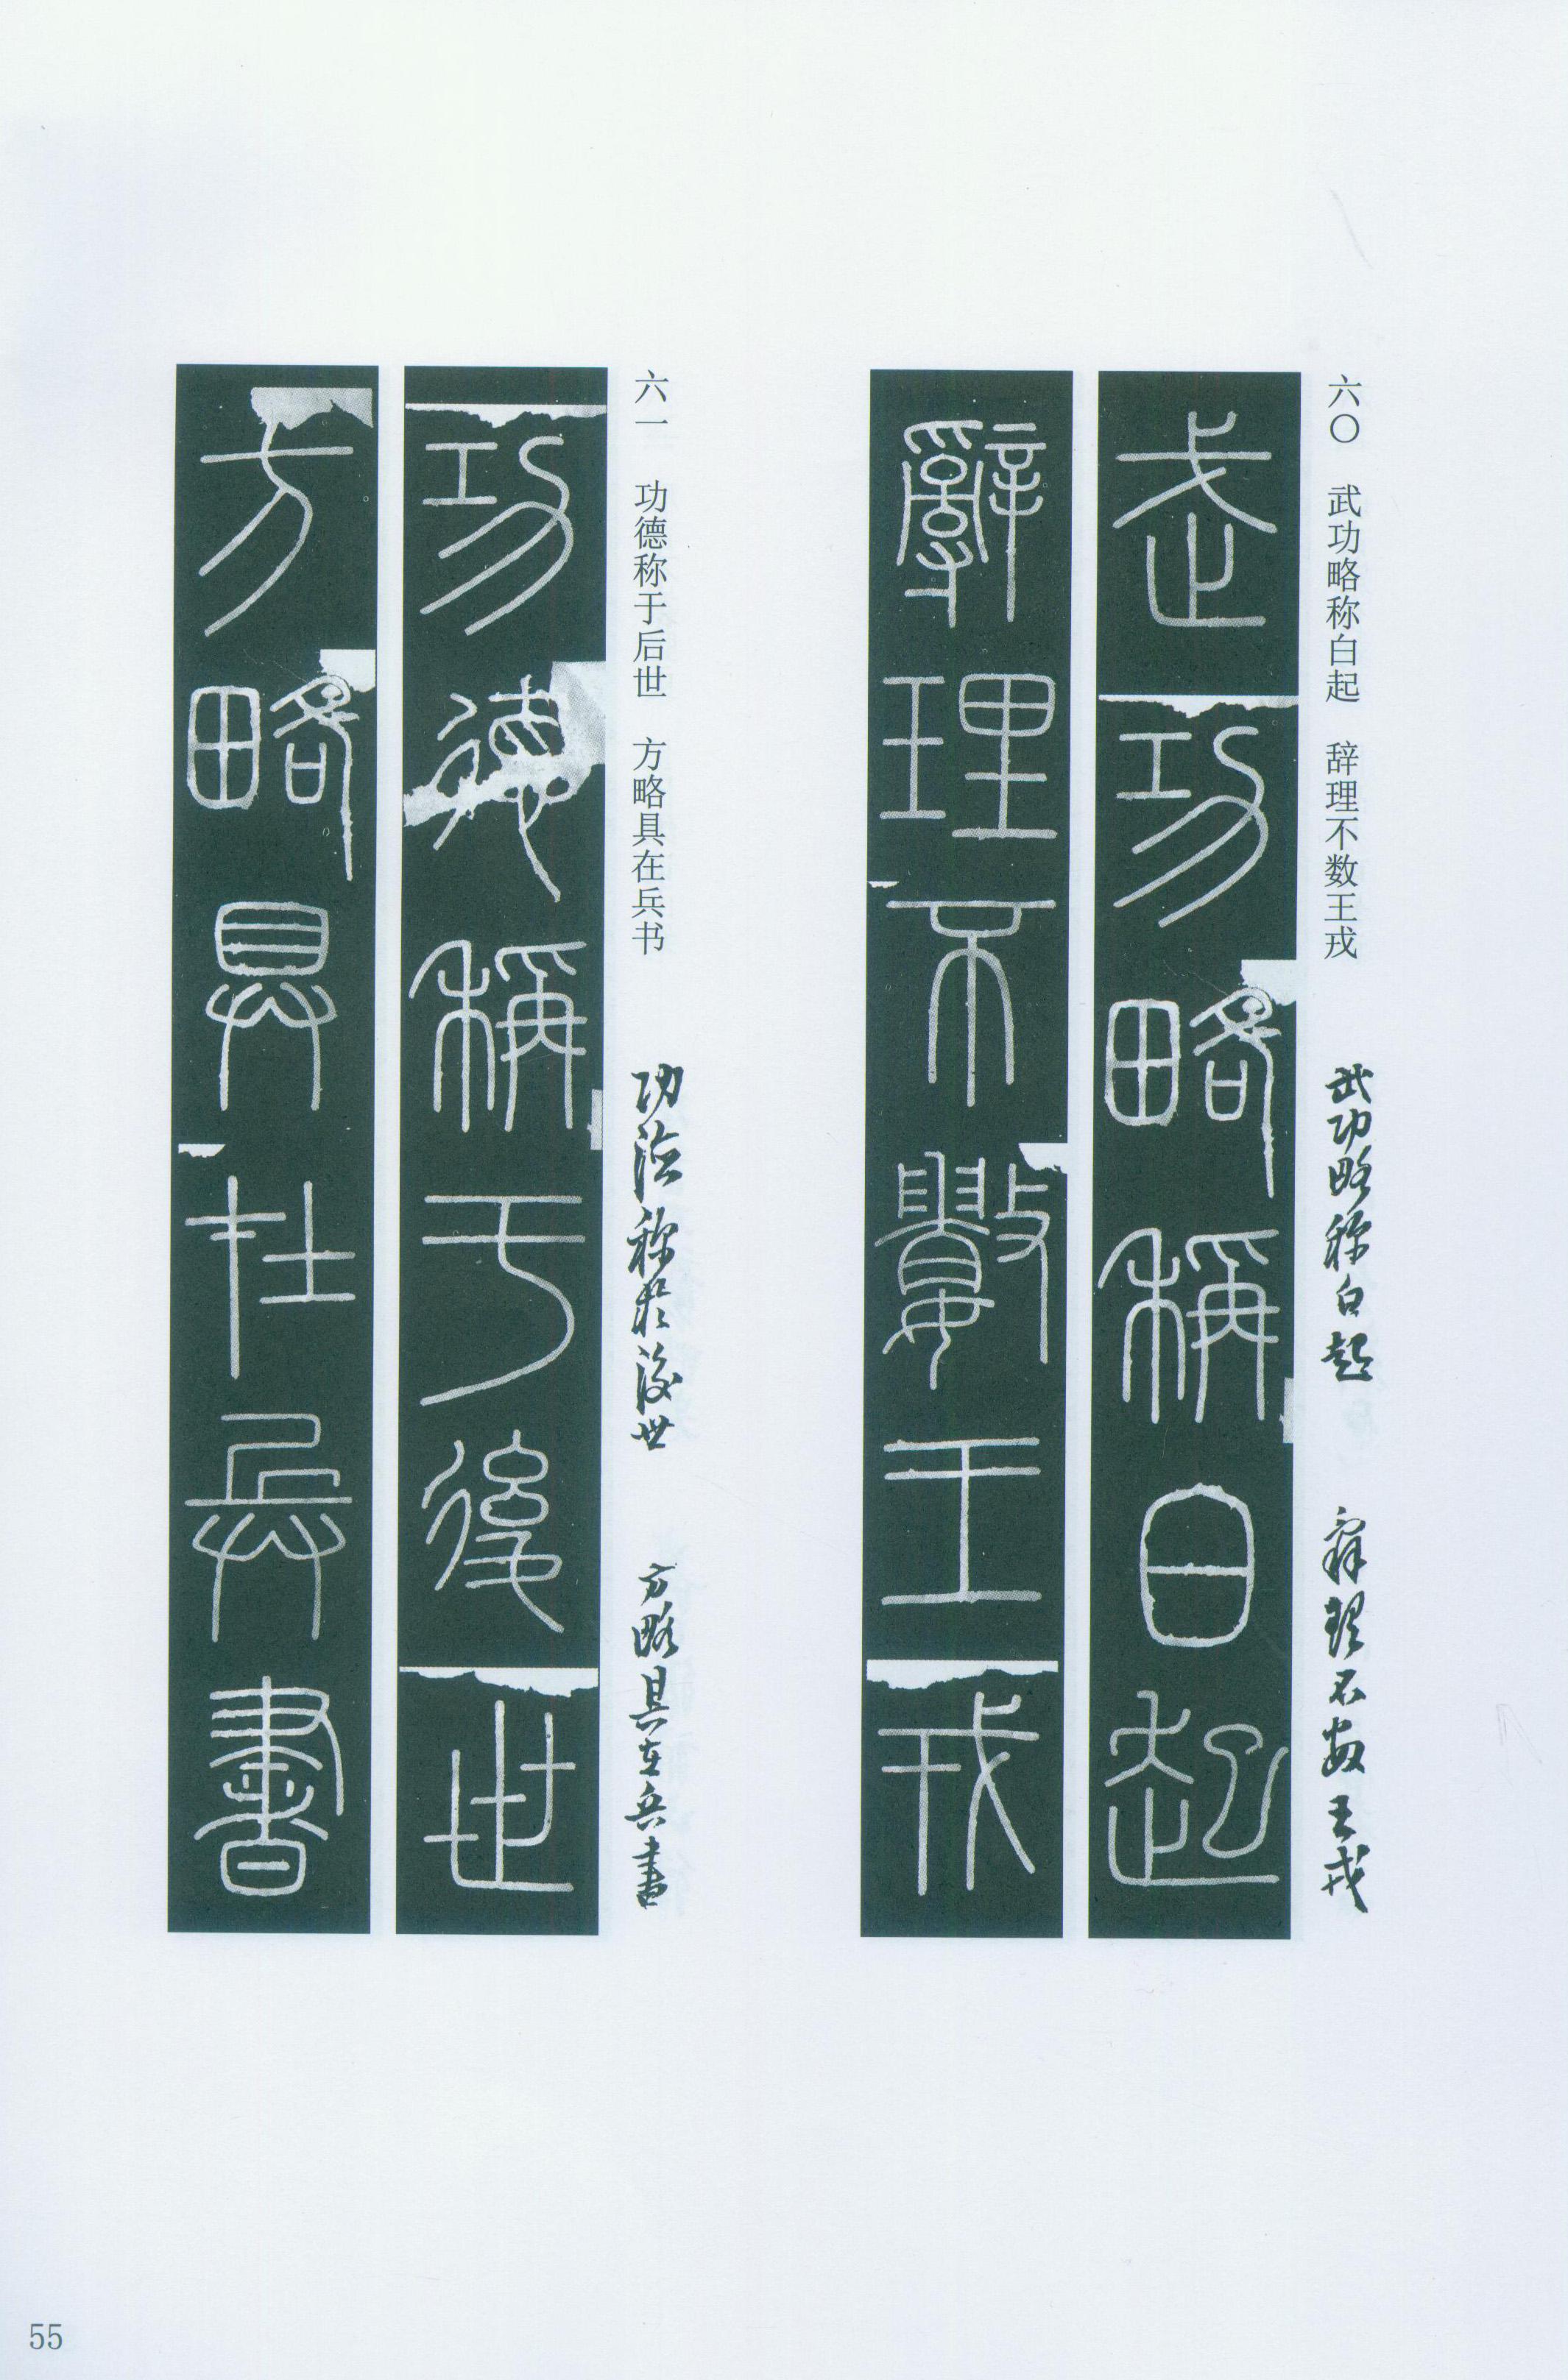 六〇 武功略称白起 辞理不数王戎
武功略称白起 辞理不数王戎
武功略稱白起
辭理不數王戎
六一 功德称于后世 方略具在兵书
功德称於後世 方略具在兵書
功德稱于後世
方略具在兵書
55